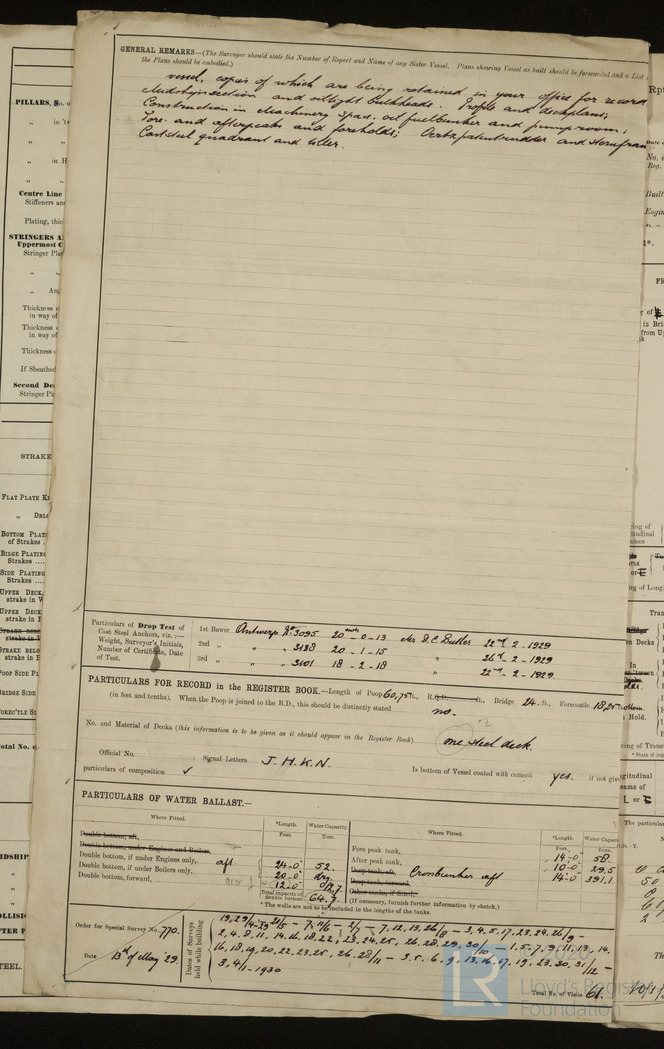 GENERAL REMARKS—(The Surveyor should state the Number of Report and Name of any Sister Vessel. Plans showing Vessel as built should be forwarded and a List
the Plans should be embodied.)
vessel, copies of which are being retained in your office for record
Midshipsection and oiltight bulkheads. Profile and deckplans;
Construction in Machinery space, oil fuelbunker and pumproom;
Fore- and afterpeaks and foreholds; Oertz patentrudder and sternfram
Caststeel quadrant and tiller.
PILLARS, No. o
Centre Line
Stiffeners and
Plating, thic
STRINGERS A
Uppermost C
Stringer Pla
Thickness
in way of
Thickness
in way of
Thickness
If Sheathed
Second Dec
Stringer Pla
STRAKE
FLAT PLATE KE
BOTTOM PLAT
of Strakes
BILGE PLATING
Strakes ....
SIDE PLATING
Strakes ....
UPPER DECK,
strake in W
UPPER DECK,
strake in B
STRAKE BELO
POOP SIDE P
BRIDGE SIDE
FORECTLE S
Total No. of
Particulars of Drop Test of
Cast Steel Anchors, viz. :—
Weight, Surveyor's Initials,
Number of Certificate, Date
of Test.
1st Bower Antwerp No. 3095 20 - 0 - 13 Mr D.C. Butler 22nd - 2 - 1929
2nd „ „ „ 3138 20 - 1 - 15 „ 26th - 2 - 1929
3rd „ „ „ 3101 18 - 2 - 18 „ 22nd - 2 - 1929
PARTICULARS FOR RECORD in the REGISTER BOOK.—Length of Poop 60,75 ft., R.Q.D. ft., Bridge 24 ft., Forecastle 18,25
(in feet and tenths). When the Poop is joined to the R.D., this should be distinctly stated no.
No. and Material of Decks (this information is to be given as it should appear in the Register Book) one steel deck.
Official No. ; Signal Letters J. H. K. N. Is bottom of Vessel coated with cement yes. if not give
particulars of composition ✓
PARTICULARS OF WATER BALLAST.—
Where Fitted. *Length. Water Capacity. Where Fitted. *Length. Water Capaci
Feet. Tons. Feet. Tons.
Double bottom, aft,
Double bottom, under Engines and Boilers,
Double bottom, if under Engines only, aft 24-0 52.
Double bottom, if under Boilers only, 20-0 dry.
Double bottom, forward, 12-0
Total capacity of
double bottom 64.7
Fore peak tank, 14-0 58.
After peak tank, 10-0 29,5
Deep tank, aft, Crossbunker aft 14-0 391.1
Deep tank, forward,
Other tanks, if fitted,
(If necessary, furnish further information by sketch.)
* The wells are not to be included in the lengths of the tanks.
Order for Special Survey No. 770.
Date 13th of May '29.
Dates of Surveys
held while building
2, 4, 8, 11, 14, 16, 18, 22, 23, 24, 25, 26, 28, 29, 30/10 - 1, 5, 7, 9, 11, 13, 14,
16, 18, 19, 20, 22, 23, 25, 26, 28/11 - 3, 5, 6, 9, 13, 16, 17, 19, 23, 30, 31/12 -
3, 4/1 - 1930.
Total No. of Visits 61.
© 2020
LR
Lloyd's Register
Foundation